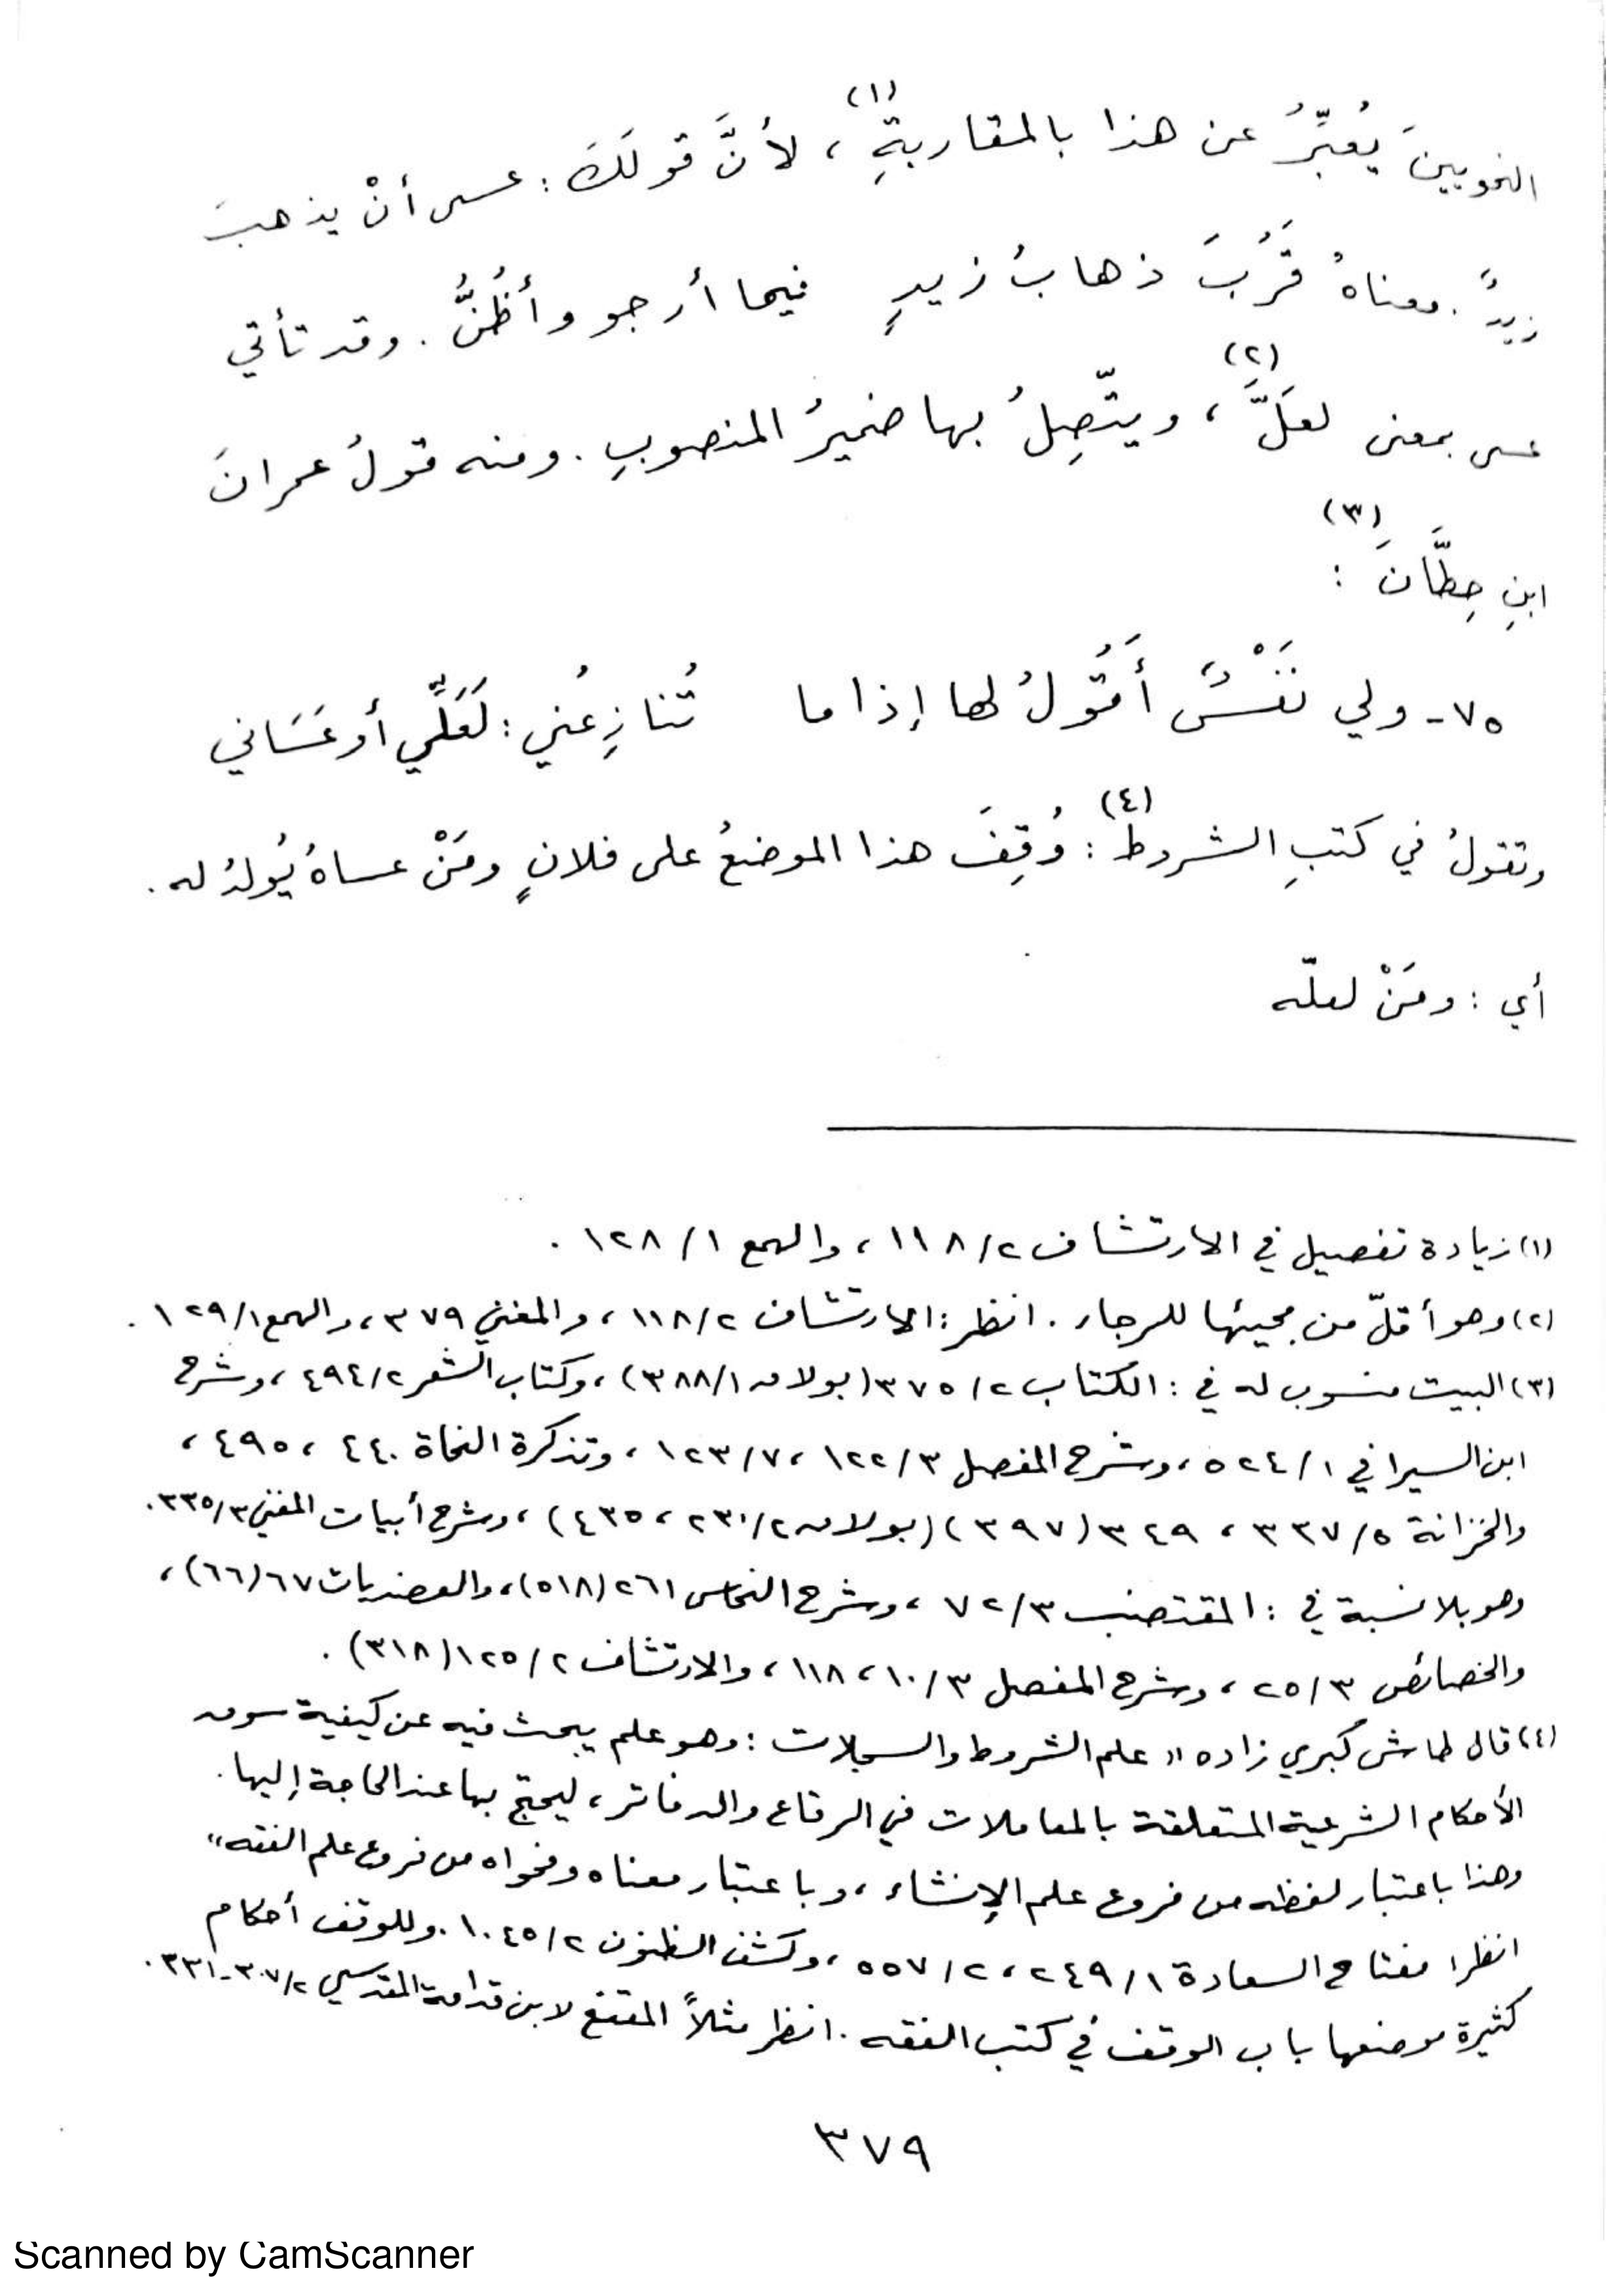 النحويينَ يُعبِّرُ عن هذا بالمقاربةِ(١)، لأنَّ قولَكَ: عسى أنْ يذهبَ
زيدٌ. معناهُ قَرُبَ ذهابُ زيدٍ فيما أرجو وأظُنُّ. وقد تأتي
عسى بمعنى لعَلَّ(٢)، ويتّصِلُ بها ضميرُ المنصوبِ. ومنه قولُ عمرانَ
ابنِ حِطَّانَ(٣):
٧٥- ولي نَفْسٌ أَقُولُ لها إذا ما تُنازِعُني: لَعَلِّي أو عَسَاني
وتقولُ في كتبِ الشروط(٤): وُقِفَ هذا الموضعُ على فلانٍ ومَنْ عساهُ يُولدُ له.
أي: ومَنْ لعلّه
(١) زيادة تفصيل في الارتشاف ٢/١١٨، والهمع ١/١٢٨.
(٢) وهو أقلّ من مجيئها للرجاء. انظر: الارتشاف ٢/١١٨، والمغني ٣٧٩، والهمع ١/١٢٩.
(٣) البيت منسوب له في: الكتاب ٢/٣٧٥ (بولاق ١/٣٨٨)، وكتاب الشعر ٢/٤٩٤، وشرح
ابن السيرافي ١/٥٢٤، وشرح المفصل ٣/١٢٢، ٧/١٢٣، وتذكرة النحاة ٤٤٠، ٤٩٥،
والخزانة ٥/٣٣٧، ٣٤٩ (٣٩٧) (بولاق ٢/٢٣٠، ٤٣٥)، وشرح أبيات المغني ٣/٣٣٥.
وهو بلا نسبة في: المقتضب ٣/٧٢، وشرح النحاس ٢٦١ (٥١٨)، والعضديات ٦٧ (٦٦)،
والخصائص ٣/٢٥، وشرح المفصل ٣/١٠، ١١٨، والارتشاف ٢/١٢٥ (٣١٨).
(٤) قال طاش كبري زاده " علم الشروط والسجلات: وهو علم يبحث فيه عن كيفية سوق
الأحكام الشرعية المتعلقة بالمعاملات في الرقاع والدفاتر، ليحتج بها عند الحاجة إليها.
وهذا باعتبار لفظه من فروع علم الإنشاء، وباعتبار معناه وفحواه من فروع علم الفقه"
انظر: مفتاح السعادة ١/٢٤٩، ٢/٥٥٧، وكشف الظنون ٢/١٠٤٥. وللوقف أحكام
كثيرة موضعها باب الوقف في كتب الفقه. انظر مثلاً المقنع لابن قدامة المقدسي ٢/٣٠٧-٣٣١.
٣٧٩
Scanned by CamScanner